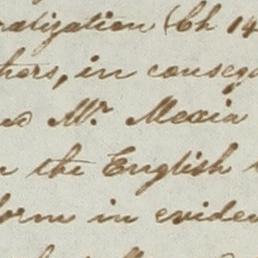 ralization (Ch 14
thers, in conseq
Mr. Mexia
the English
form in eviden